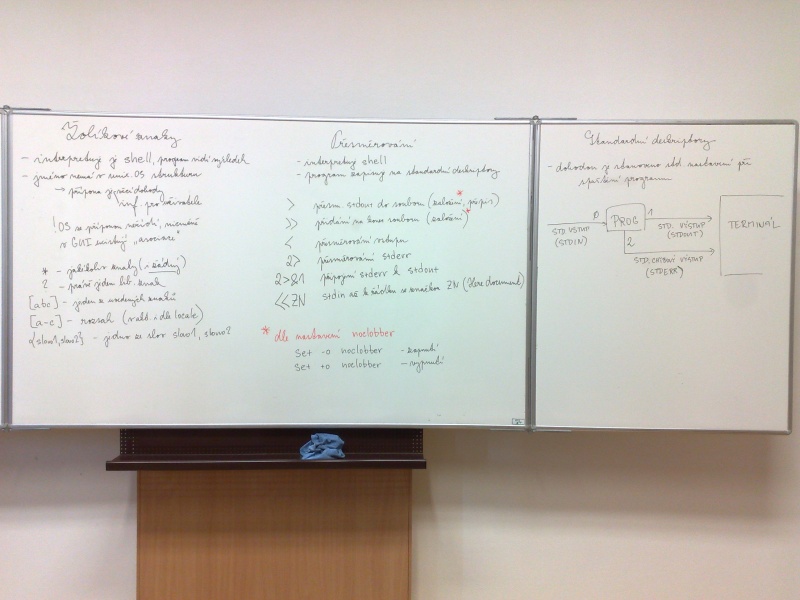 Žolíkové znaky
- interpretuje je shell, program vidí výsledek
- jméno nemá v unix OS strukturu
→ přípona je věcí dohody
inf. pro uživatele
! OS se příponou neřídí, nicméně
v GUI existují „asociace"
* - jakékoliv znaky (i žádný)
? - právě jeden lib. znak
[abc] - jeden z uvedených znaků
[a-c] - rozsah (vždy i dle locale)
{slovo1,slovo2} - jedno ze slov slovo1, slovo2
Přesměrování
- interpretuje shell
- program zapisuje na standardní deskriptory
> přesm. stdout do souboru (založení*, přepis)
>> přidání na konec souboru (založení*)
< přesměrování vstupu
2> přesměrování stderr
2>&1 připojení stderr k stdout
<<ZN stdin až k řádku se značkou ZN (Here document)
* dle nastavení noclobber
set -o noclobber - zapnutí
set +o noclobber - vypnutí
Standardní deskriptory
- dohodou je stanoveno std. nastavení při
spuštění programu
STD. VSTUP
(STDIN)
0
PROG
1
STD. VÝSTUP
(STDOUT)
2
STD. CHYBOVÝ VÝSTUP
(STDERR)
TERMINÁL